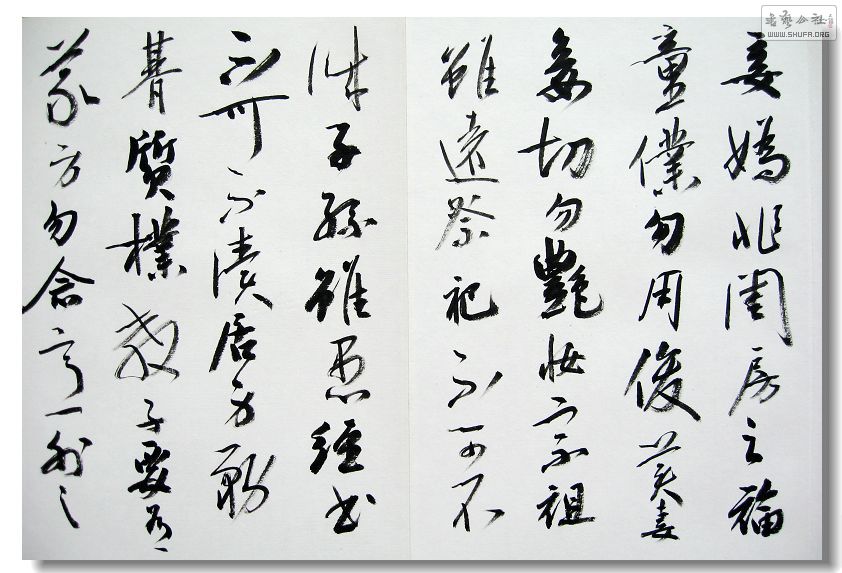 妾嬌非閨房之福
童僕勿用俊美妻
妾切勿豔妝宗祖
雖遠祭祀不可不
誠子孫雖愚經書
不可不讀居身務
朞質樸教子要有
義方勿貪意外之
書藝公社
WWW.SHUFA.ORG